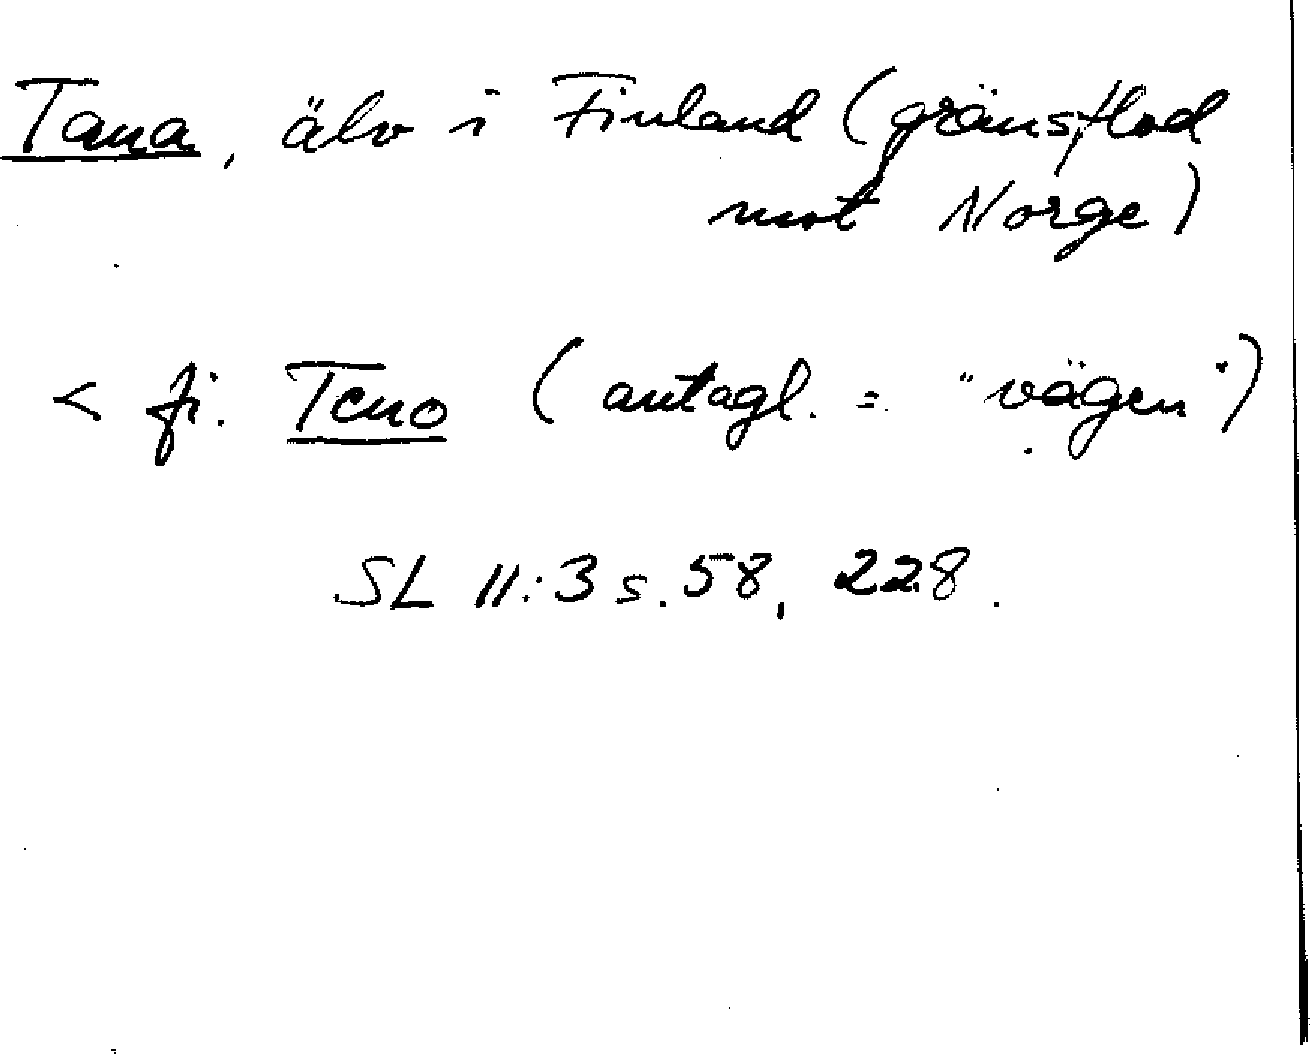 Tana, älv i Finland (gränsflod
mot Norge)
< fi. Teno (antagl. = "vägen")
SL 11:3 s. 58, 228.